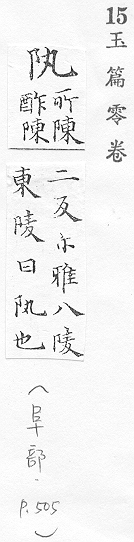 15 玉篇零卷
阠
所陳
酢陳
二反尒雅八陵
東陵曰阠也
(阜部. p.505)